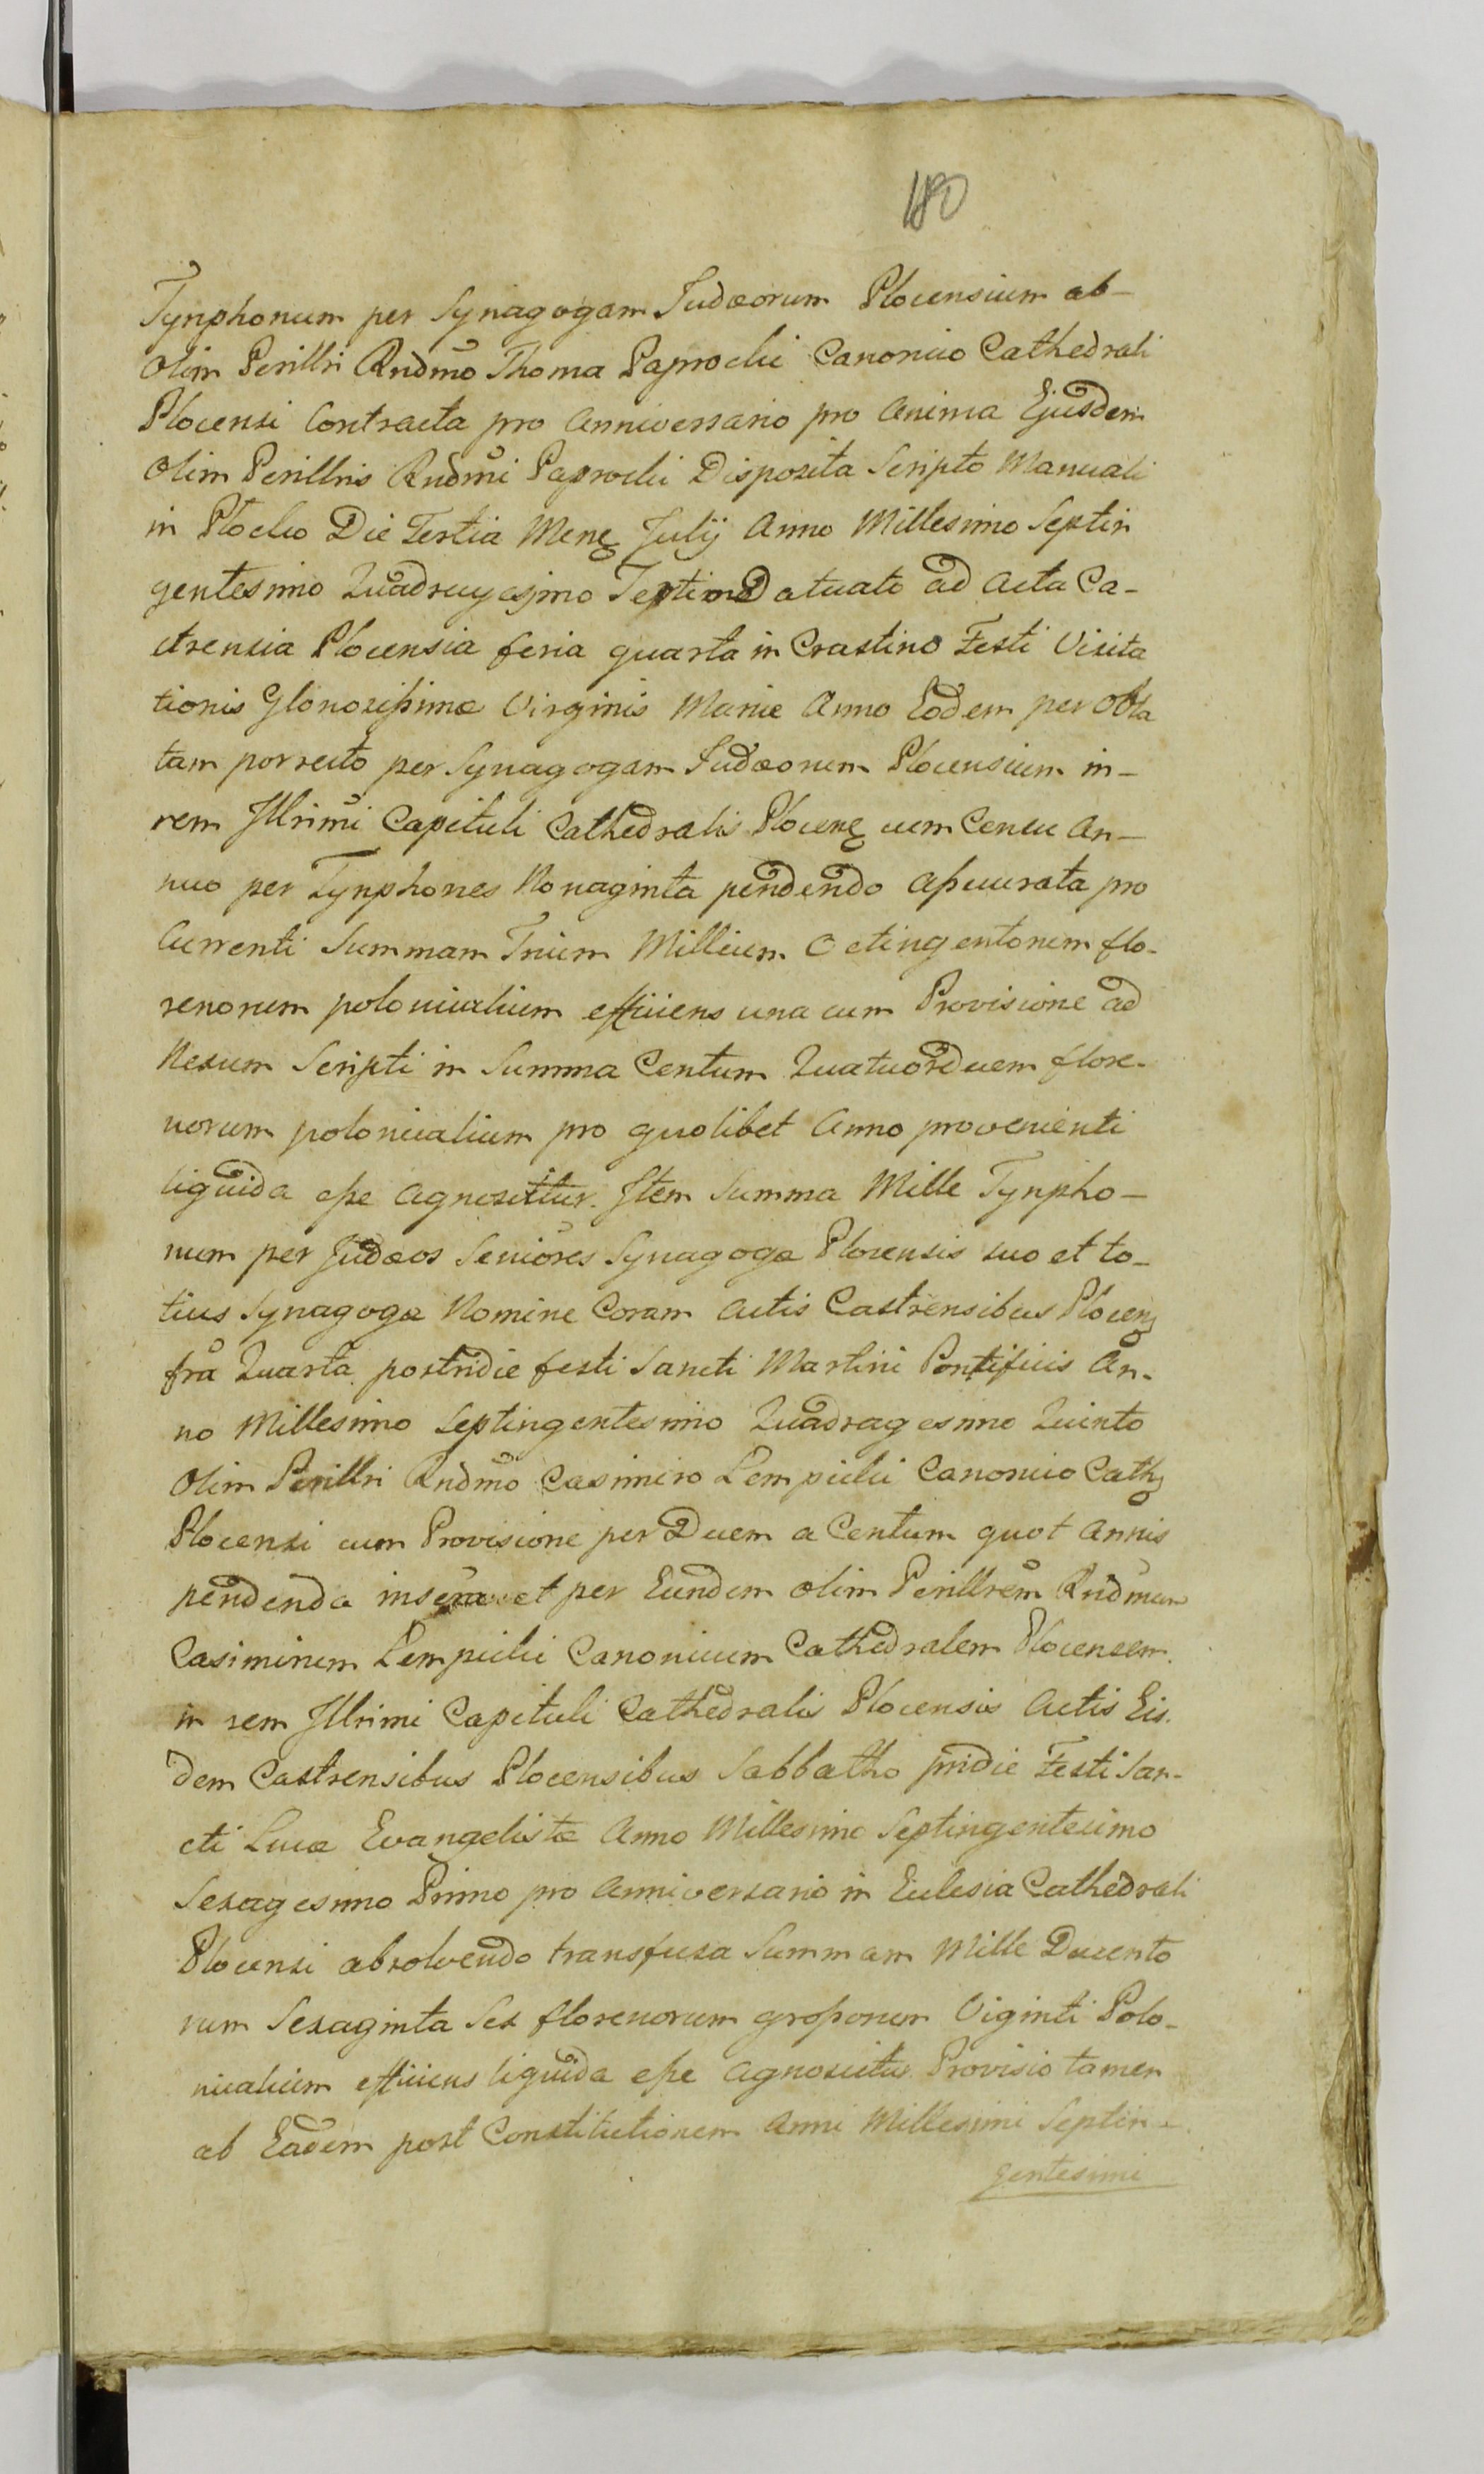 180
Tynphonum per Synagogam Judæorum Plocensium ab-
olim Perillri Rndmo Thoma Paprocki Canonico Cathedrali
Plocensi Contracta pro Anniversario pro Anima Ejusdem
olim Perillris Rndmi Paprocki Disposita Scripto Manuali
in Plocko Die Tertia Mens Julij Anno Millesimo Septin
gentesimo Quadragesimo Septimo Datuato ad Acta Ca-
strensia Plocensia feria quarta in Crastino Festi Visita
tionis Gloriosissimæ Virginis Mariæ Anno Eodem per Obla
tam porrecto per Synagogam Judæorum Plocensium in-
rem Illrimi Capituli Cathedralis Plocens cum Censu An-
nuo per Tynphones Nonaginta pendendo assecurata pro
Currenti Summam Trium Millium Octingentorum flo-
renorum polonicalium efficiens una cum Provisione ad
Nexum Scripti in Summa Centum Quatuordecem flore-
norum polonicalium pro quolibet Anno provenienti
liquida esse Agnoscittur. Item Summa Mille Tynpho-
num per Judæos Seniores Synagogæ Plocensis suo et to-
tius Synagogæ Nomine Coram Actis Castrensibus Plocens
fra Quarta postridie festi Sancti Martini Pontificis An-
no Millesimo Septingentesimo Quadragesimo Quinto
olim Perillri Rndmo Casimiro Lempicki Canonico Cath
Plocensi cum Provisione per Decem a Centum quot Annis
pendenda et per Eundem olim Perillrem Rndmum
Casimirum Lempicki Canonicum Cathedralem Plocensem
in rem Illrimi Capituli Cathedralis Plocensis Actis Eis-
dem Castrensibus Plocensibus Sabbatho pridie Festi San-
cti Lucæ Evangelistæ Anno Millesimo Septingentesimo
Sexagesimo Primo pro Anniversario in Eclesia Cathedrali
Plocensi absolvendo transfusa Summam Mille Ducento
rum Sexaginta Sex florenorum grossorum Viginti Polo-
nicalium efficiens liquida esse Agnoscitur Provisio tamen
ab Eadem post Constitutionem Anni Millesimi Septin-
gentesimi